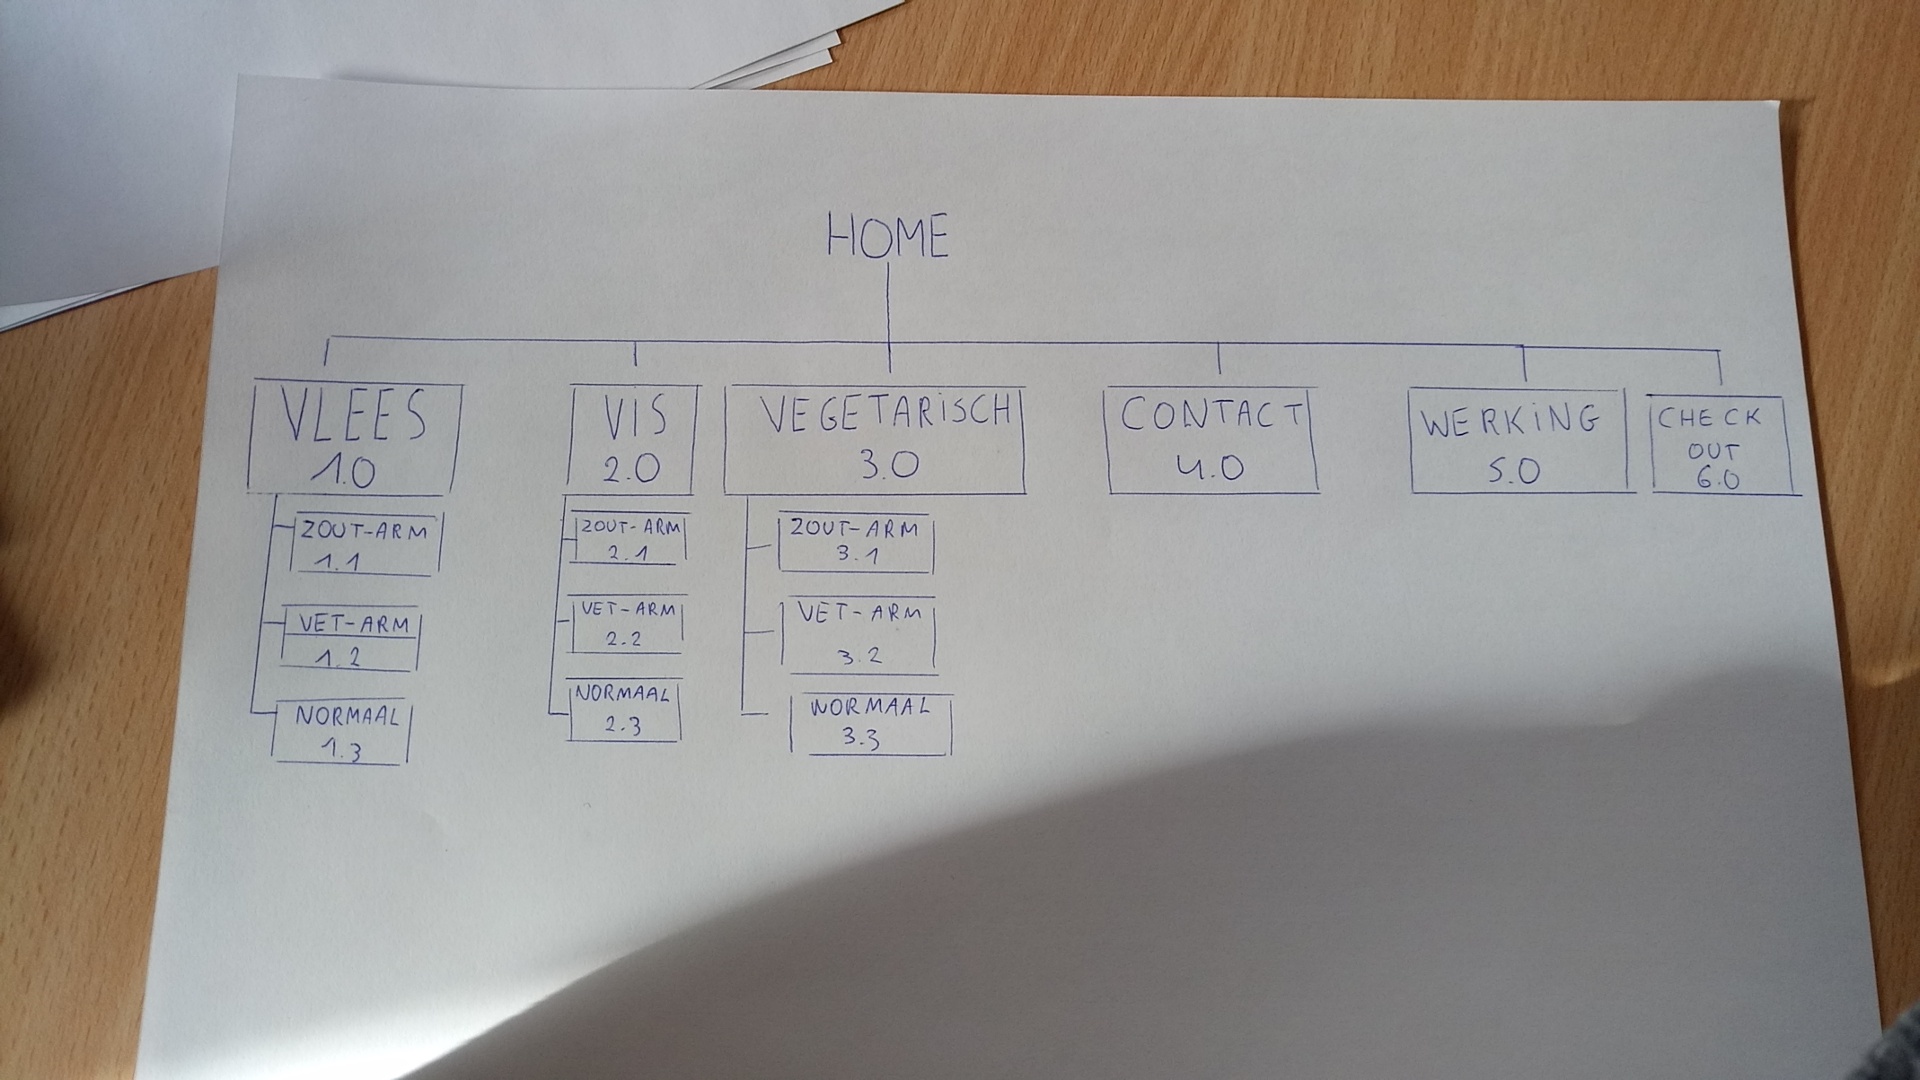 HOME
VLEES
1.0
ZOUT-ARM
1.1
VET-ARM
1.2
NORMAAL
1.3
VIS
2.0
ZOUT-ARM
2.1
VET-ARM
2.2
NORMAAL
2.3
VEGETARISCH
3.0
ZOUT-ARM
3.1
VET-ARM
3.2
NORMAAL
3.3
CONTACT
4.0
WERKING
5.0
CHECK
OUT
6.0